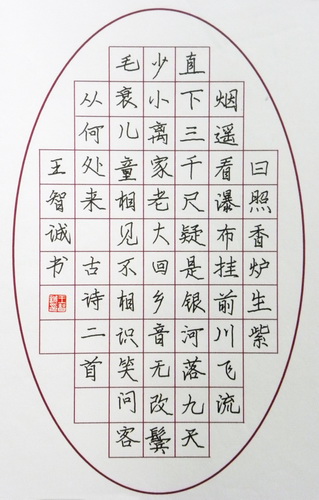 日照香炉生紫
烟遥看瀑布挂前川飞流
直下三千尺疑是银河落九天
少小离家老大回乡音无改鬓
毛衰儿童相见不相识笑问客
从何处来 古诗二首
王智诚书